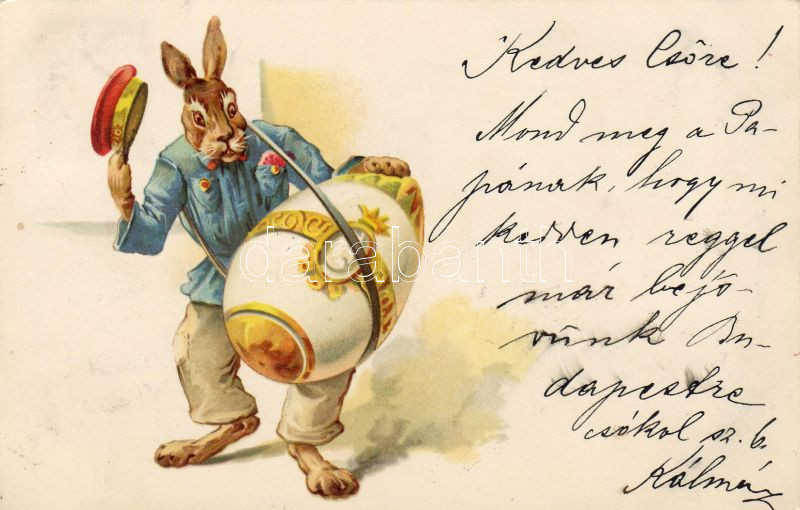 Kedves Csőre!
Mond meg a Pa-
pának, hogy mi
kedden reggel
már bejö-
vünk Bu-
dapestre
csókol sz. b.
Kálmán
darabanth